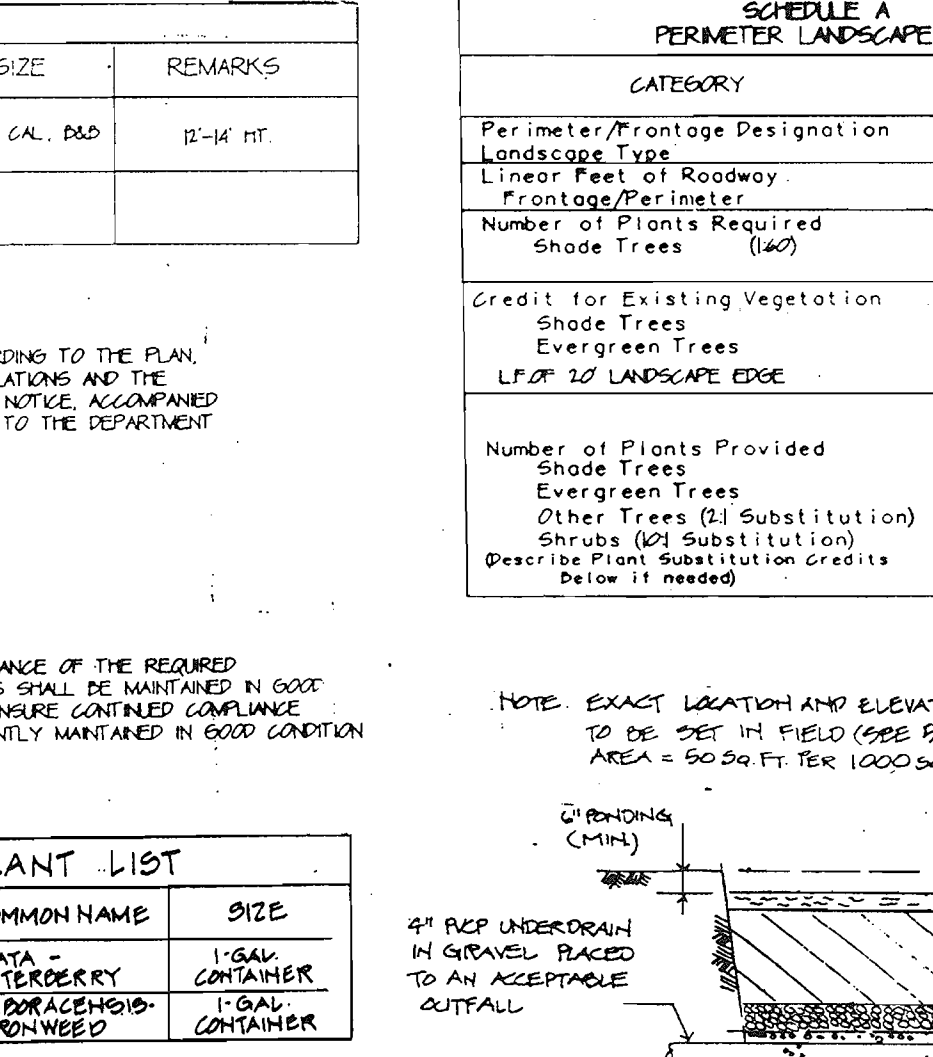 SIZE
REMARKS
CAL. B&B
12'-14' HT.
TO THE PLAN,
AND THE
NOTICE, ACCOMPANIED
TO THE DEPARTMENT
OF THE REQUIRED
SHALL BE MAINTAINED IN GOOD
CONTINUED COMPLIANCE
MAINTAINED IN GOOD CONDITION
LANT LIST
OMMON NAME
SIZE
ATA -
TERBERRY
1-GAL.
CONTAINER
BORACENSIS-
RONWEED
1-GAL.
CONTAINER
SCHEDULE A
PERIMETER LANDSCAPE
CATEGORY
Perimeter/Frontage Designation
Landscape Type
Linear Feet of Roadway
Frontage/Perimeter
Number of Plants Required
Shade Trees (1:60)
Credit for Existing Vegetation
Shade Trees
Evergreen Trees
LF OF 20' LANDSCAPE EDGE
Number of Plants Provided
Shade Trees
Evergreen Trees
Other Trees (2:1 Substitution)
Shrubs (10:1 Substitution)
(Describe Plant Substitution Credits
Below if needed)
NOTE. EXACT LOCATION AND ELEVAT
TO BE SET IN FIELD (SEE
AREA = 50 SQ. FT. PER 1000
6" PONDING
(MIN.)
4" PVCP UNDERDRAIN
IN GRAVEL PLACED
TO AN ACCEPTABLE
OUTFALL